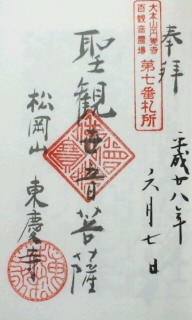 奉拝
大本山円覚寺
百観音霊場
第七番札所
平成廿八年
六月七日
聖観世音菩薩
松岡山 東慶寺